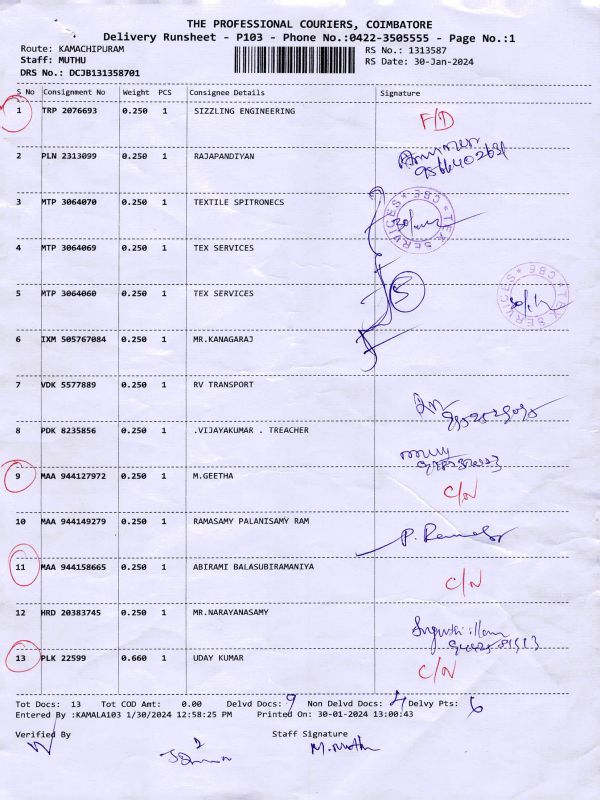 THE PROFESSIONAL COURIERS, COIMBATORE
Delivery Runsheet - P103 - Phone No.:0422-3505555 - Page No.:1
Route: KAMACHIPURAM RS No.: 1313587
Staff: MUTHU RS Date: 30-Jan-2024
DRS No.: DCJB131358701
S No Consignment No Weight PCS Consignee Details Signature
1 TRP 2076693 0.250 1 SIZZLING ENGINEERING F/D
2 PLN 2313099 0.250 1 RAJAPANDIYAN
3 MTP 3064070 0.250 1 TEXTILE SPITRONECS
TEX SERVICES * CBE *
4 MTP 3064069 0.250 1 TEX SERVICES
5 MTP 3064060 0.250 1 TEX SERVICES 5
TEX SERVICES * CBE *
6 IXM 505767084 0.250 1 MR.KANAGARAJ
7 VDK 5577889 0.250 1 RV TRANSPORT
8 PDK 8235856 0.250 1 .VIJAYAKUMAR . TREACHER
9 MAA 944127972 0.250 1 M.GEETHA C/N
10 MAA 944149279 0.250 1 RAMASAMY PALANISAMY RAM
11 MAA 944158665 0.250 1 ABIRAMI BALASUBIRAMANIYA C/N
12 HRD 20383745 0.250 1 MR.NARAYANASAMY
13 PLK 22599 0.660 1 UDAY KUMAR C/N
Tot Docs: 13 Tot COD Amt: 0.00 Delvd Docs: 9 Non Delvd Docs: 4 Delvy Pts: 6
Entered By :KAMALA103 1/30/2024 12:58:25 PM Printed On: 30-01-2024 13:00:43
Verified By Staff Signature
M. Muthu